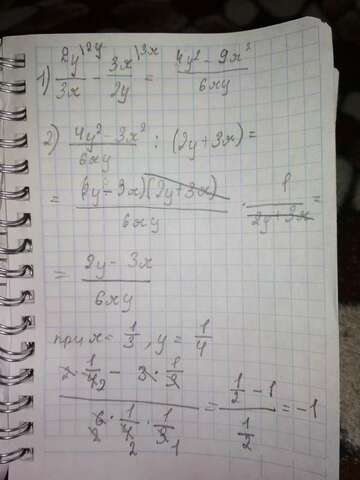 1) 2y/3x \2y - 3x/2y \3x = 4y² - 9x²/6xy
2) 4y² - 3x²/6xy : (2y + 3x) =
= (2y - 3x)(2y + 3x)/6xy · 1/2y + 3x =
= 2y - 3x/6xy
при x = 1/3, y = 1/4
2 · 1/4 2 - 3 · 1/3 / 6 2 · 1/4 2 · 1/3 1 = 1/2 - 1 / 1/2 = -1